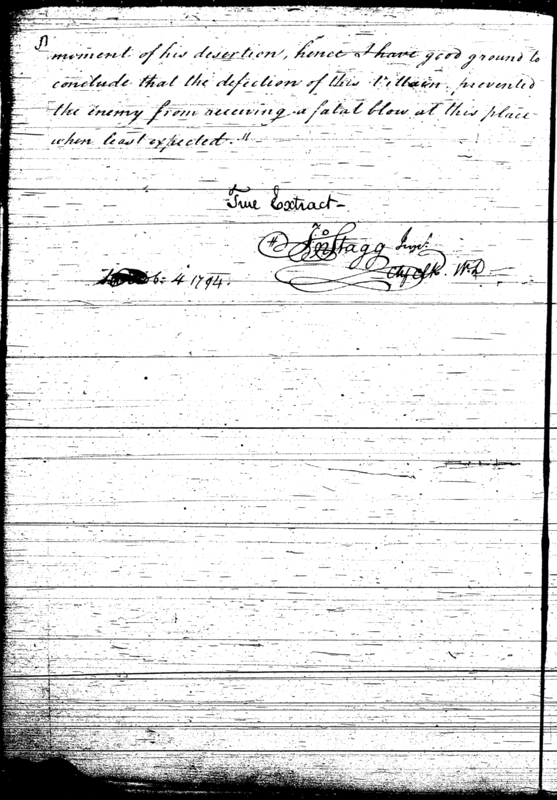 " moment of his desertion, hence I have good ground to
conclude that the defection of this Villain, prevented
the enemy from receiving a fatal blow at this place
when least expected."
True Extract–
Jno Stagg Junr.
Chf Clk. W.D
4 1794.